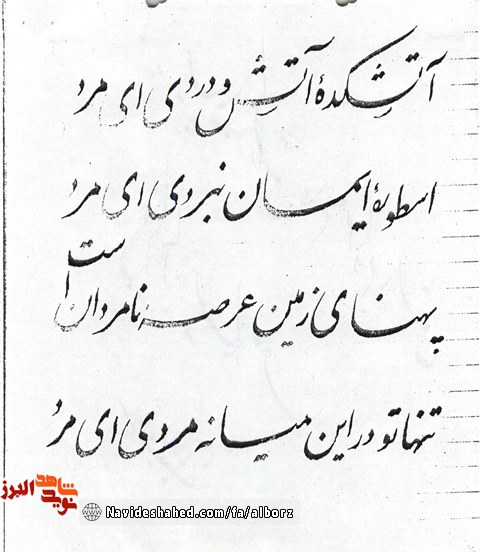 آتشکدهٔ آتش و دردی ای مرد
اسطورهٔ ایمان نبردی ای مرد
پهنای زمین عرصه نامردان است
تنها تو در این میانه مردی ای مرد
نوید شاهد البرز
Navideshahed.com/fa/alborz